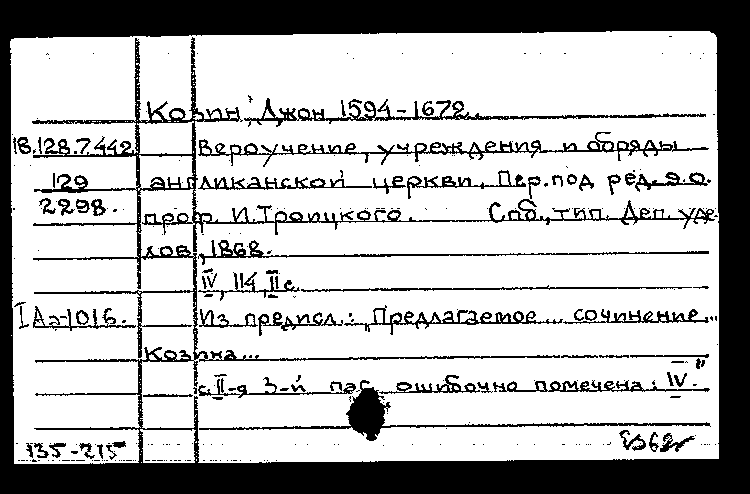 Козин, Джон, 1594-1672.
18.128.7.442 Вероучение, учреждения и обряды
129 англиканской церкви. Пер. под ред. Э.О.
2298. проф. И. Троицкого. Спб., тип. Деп. уде-
лов, 1868.
IV, 114, II с.
I Аэ-1016. Из предисл.: „Предлагаемое... сочинение...
Козина...
с. II-я 3-й паг. ошибочно помечена: IV."
135-215